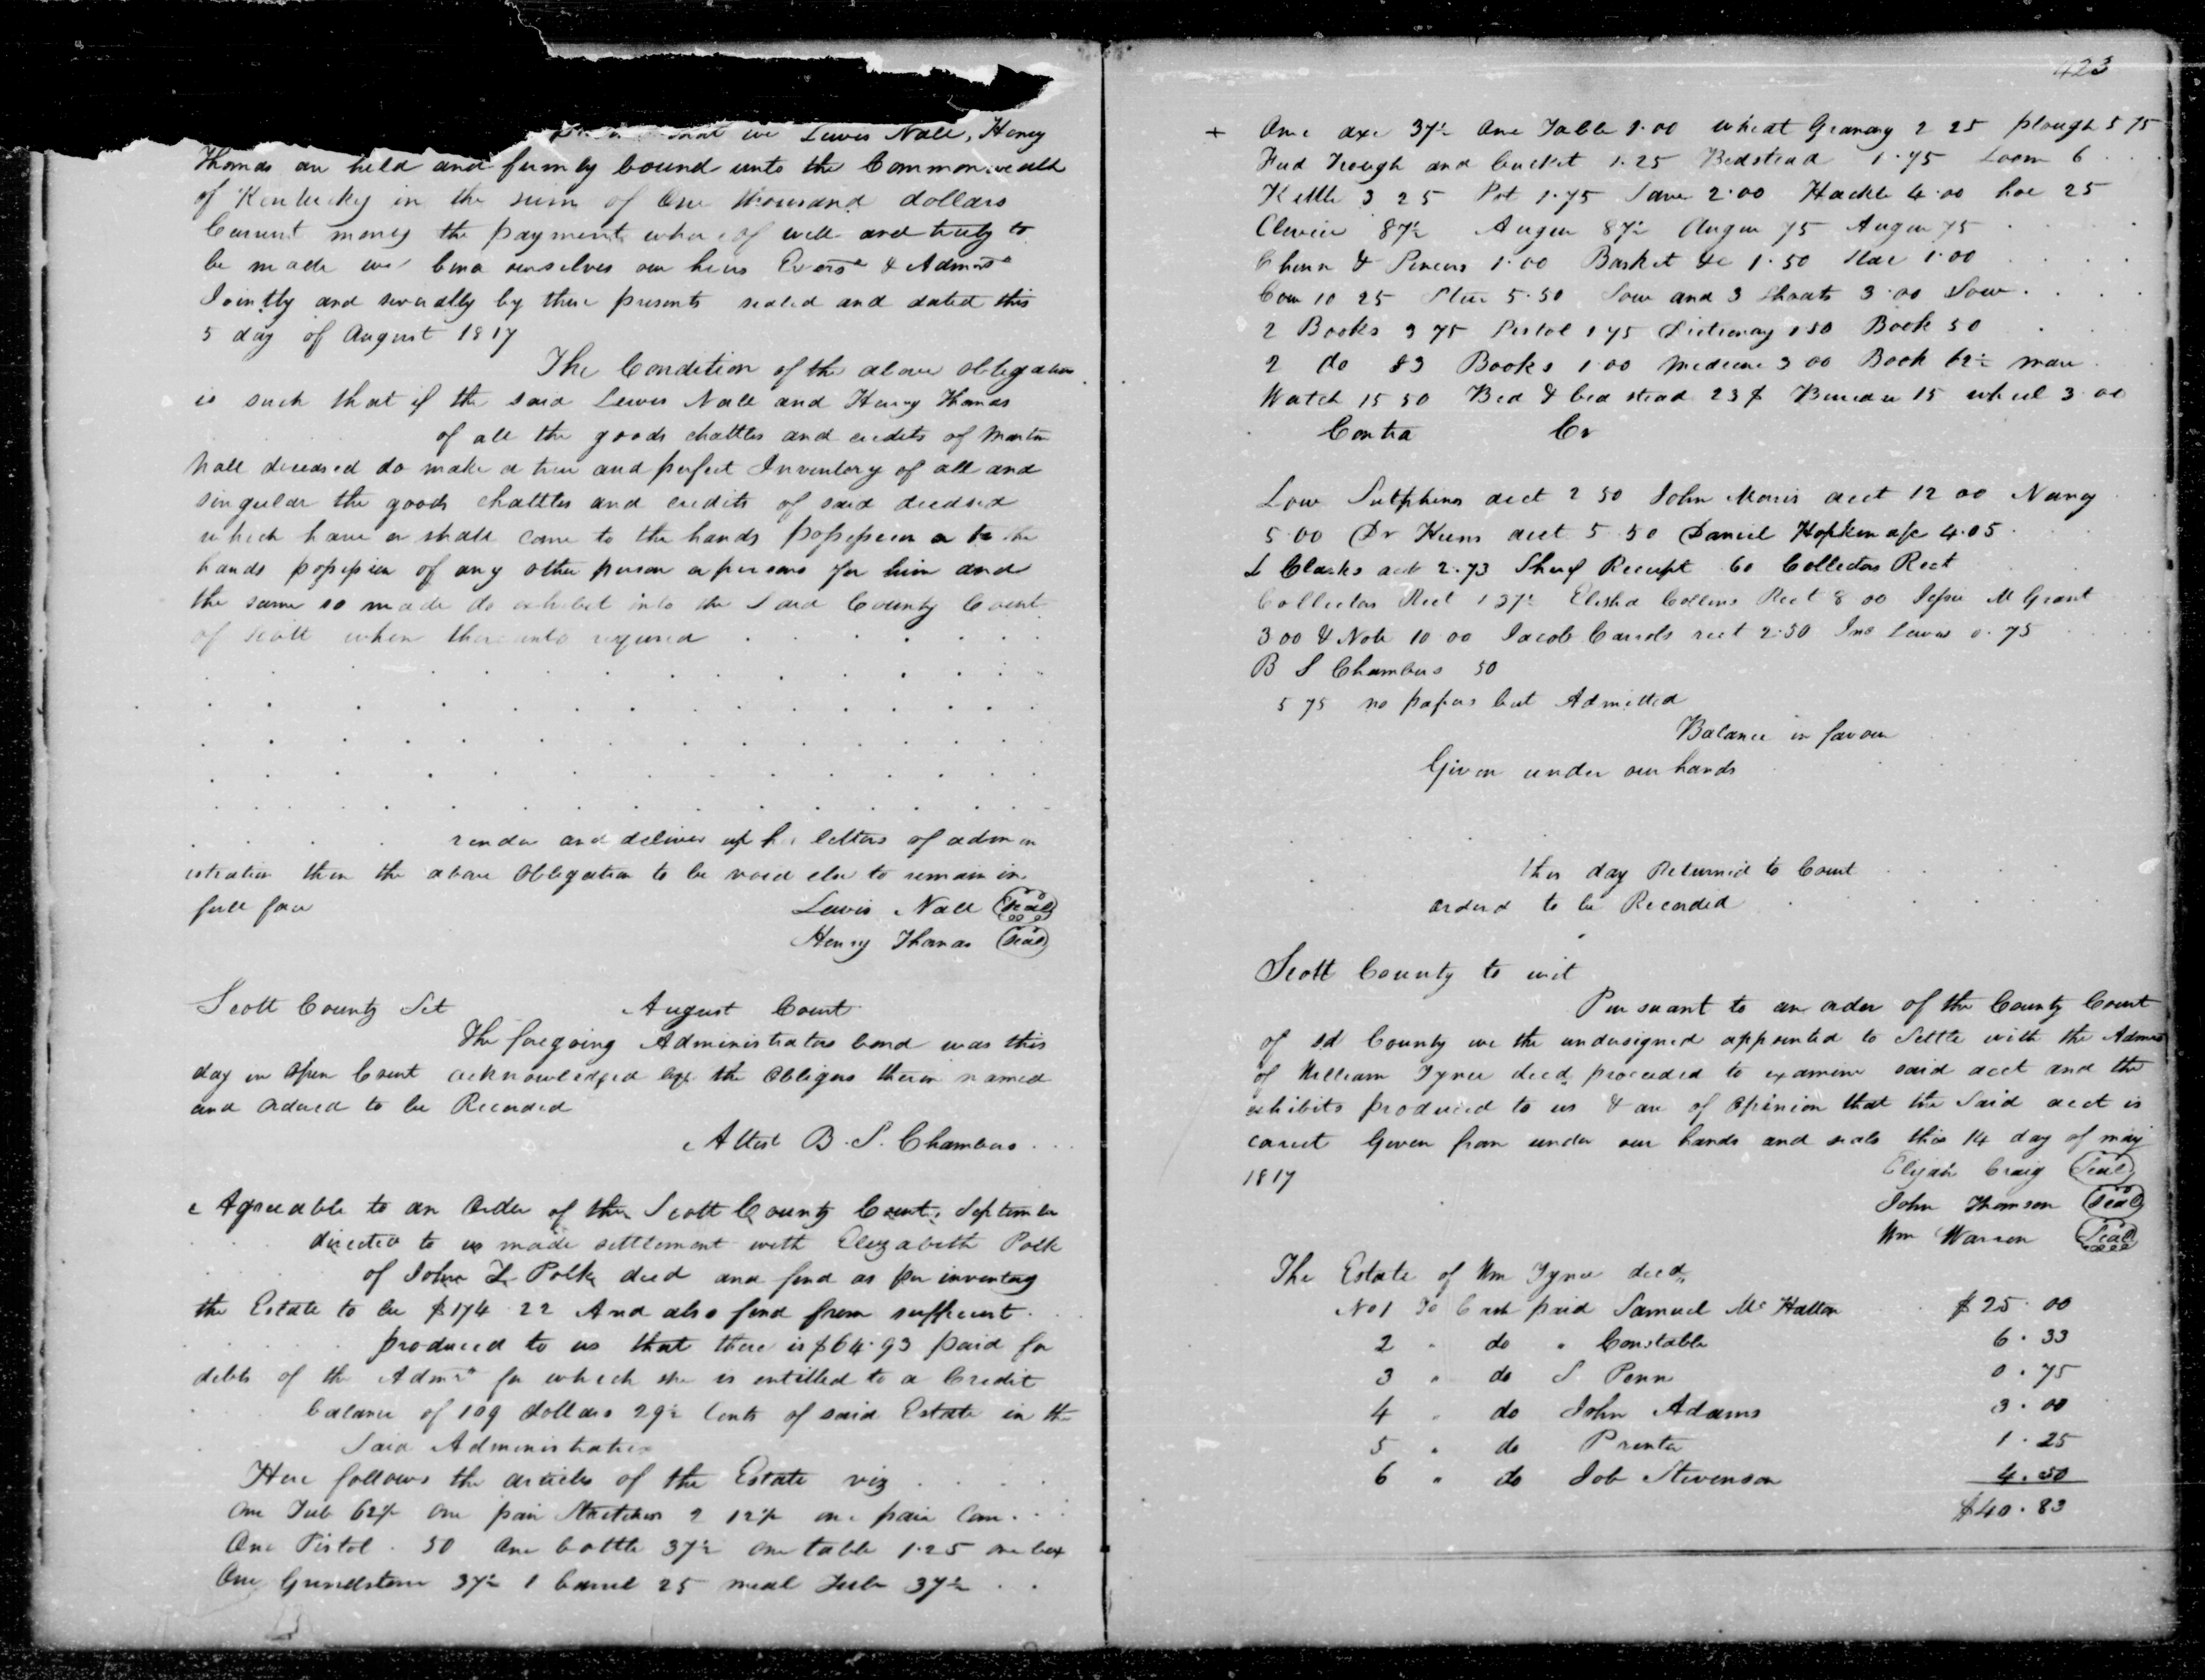 that we Lewis Nall, Henry
Thomas are held and firmly bound unto the Commonwealth
of Kentucky in the sum of One thousand dollars
Current money the payment whereof well and truly to
be made we bind ourselves our heirs Exors & Admors
Jointly and severally by these presents sealed and dated this
5 day of August 1817
The Condition of the above obligation
is such that if the said Lewis Nall and Henry Thomas
of all the goods chattles and credits of Martin
Nall deceased do make a true and perfect Inventory of all and
singular the goods chattles and credits of said deceased
which have or shall come to the hands possession or to the
hands possession of any other person or persons for him and
the same so made do exhibit into the Said County Court
of Scott when thereunto required . . . . . .
render and deliver up his letters of admin
istration then the above Obligation to be void else to remain in
full force Lewis Nall (Seal)
Henry Thomas (Seal)
Scott County Sct August Court
The foregoing Administrators bond was this
day in Open Court acknowledged by the Obligors therein named
and ordered to be Recorded
Attest B. S. Chambers . . .
Agreeable to an Order of the Scott County Court, September
directed to us made settlement with Elizabeth Polk
of John L Polk decd and find as per inventory
the Estate to be $174 22 And also find from sufficient .
produced to us that there is $64.93 paid for
debts of the Admrx for which she is entitled to a Credit
balance of 109 dollars 29½ Cents of said Estate in the
Said Administratrix
Here follows the articles of the Estate viz . . . .
One Tub 62½ one pair Stretchers 2 12½ one pair Com . . .
One Pistol . 50 One bottle 37½ one table 1.25 one box
One Grindstone 37½ 1 barrel 25 meal Tub 37½ . .
423
+ One axe 37½ One Table 1.00 wheat Granary 2 25 plough 5 75
Feed Trough and bucket 1.25 Bedstead 1.75 Loom 6 . . .
Kettle 3 25 Pot 1.75 Same 2.00 Hackle 4.00 hoe 25
Clevice 87½ Auger 87½ Auger 75 Auger 75 . . . .
Churn & 1.00 Basket &c 1.50 1.00 . . . .
Cow 10 25 Steer 5.50 Sow and 3 Shoats 3.00 Sow . . . .
2 Books 3 75 Pistol 1 75 Dictionary 1 50 Book 50
2 do 83 Books 1.00 Medicine 3 00 Book 62½ mare .
Watch 15 50 Bed & bed stead 23 $ Bureau 15 wheel 3.00
Contra Cr
Low Sutphins acct 2 50 John Morris acct 12 00 Nancy
5.00 Dr Hunns acct 5.50 Daniel Hopkin a/c 4.05
L Clarks act 2.73 Sherf Receipt 60 Collectors Rect
Collectors Rect 1 37½ Elisha Collins Rect 8 00 Jesse M Grant
3 00 & Note 10 00 Jacob Carrols rect 2.50 Jno Lewis 0.75
B S Chambers 50
5 75 no papers but Admitted
Balance in favour
Given under our hands
this day Returned to Court
ordered to be Recorded
Scott County to wit
Pursuant to an order of the County Court
of sd County we the undersigned appointed to Settle with the Admrs
of William Tyner decd, proceeded to examine said acct and the
exhibits produced to us & are of Opinion that the Said acct is
correct Given from under our hands and seals this 14 day of may
1817 Elijah Craig (Seal)
John Thomson (Seal)
Wm Warren (Seal)
The Estate of Wm Tyner decd,
No 1 To Cash paid Samuel Mc Hatton $25.00
2 " do " Constable 6.33
3 " do S Penn 0.75
4 " do John Adams 3.00
5 " do Printer 1.25
6 " do Job Stevenson 4.50
$40.83